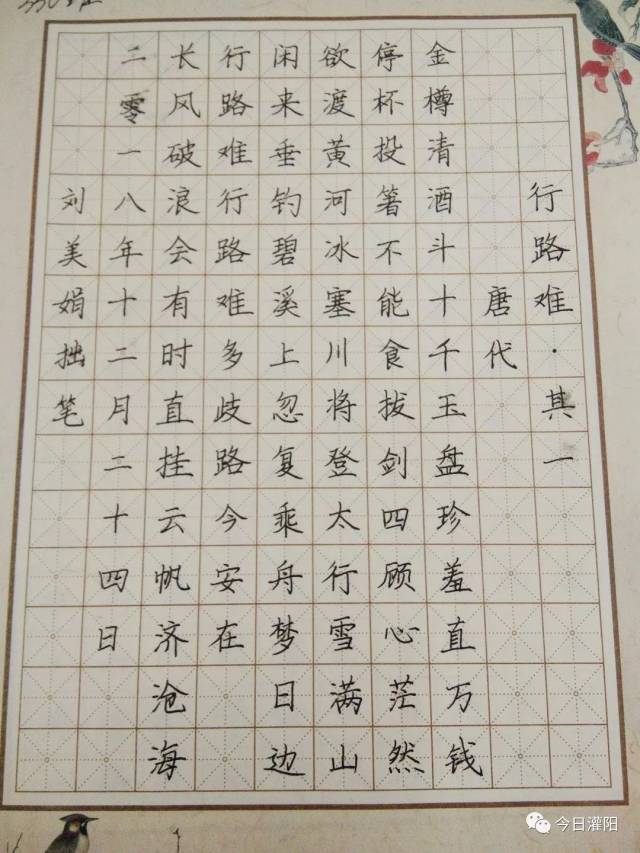 行路难·其一
唐代
金樽清酒斗十千玉盘珍羞直万钱
停杯投箸不能食拔剑四顾心茫然
欲渡黄河冰塞川将登太行雪满山
闲来垂钓碧溪上忽复乘舟梦日边
行路难行路难多歧路今安在
长风破浪会有时直挂云帆济沧海
二零一八年十二月二十四日
刘美娟拙笔
今日灌阳